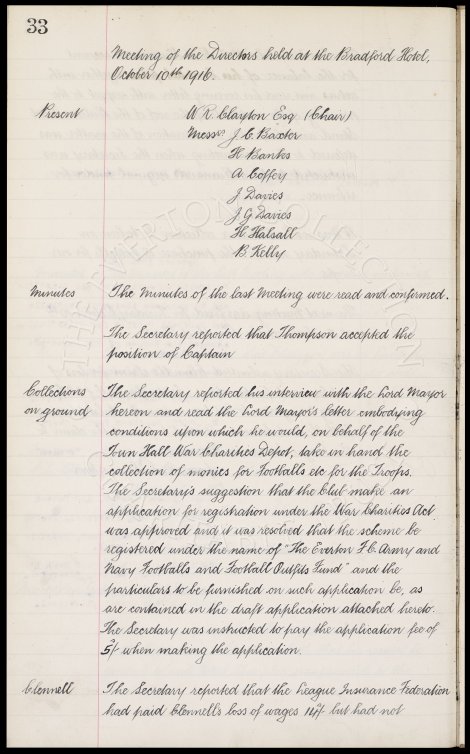 33
Meeting of the Directors held at the Bradford Hotel,
October 10th 1916.
Present W R. Clayton Esq (Chair)
Messrs J C. Baxter
H Banks
A Coffey
J Davies
J G Davies
H Halsall
B. Kelly
Minutes The Minutes of the last Meeting were read and confirmed.
The Secretary reported that Thompson accepted the
position of Captain
Collections The Secretary reported his interview with the Lord Mayor
on ground hereon and read the Lord Mayor's letter embodying
conditions upon which he would, on behalf of the
Town Hall War Charities Depot, take in hand the
collection of monies for Footballs etc for the Troops.
The Secretary's suggestion that the Club make an
application for registration under the War Charities Act
was approved and it was resolved that the scheme be
registered under the name of "The Everton F.C. Army and
Navy Footballs and Football Outfits Fund" and the
particulars to be furnished on such application be, as
are contained in the draft application attached hereto.
The Secretary was instructed to pay the application fee of
5/- when making the application.
Clennell The Secretary reported that the League Insurance Federation
had paid Clennell's loss of wages but had not
THE EVERTON COLLECTION